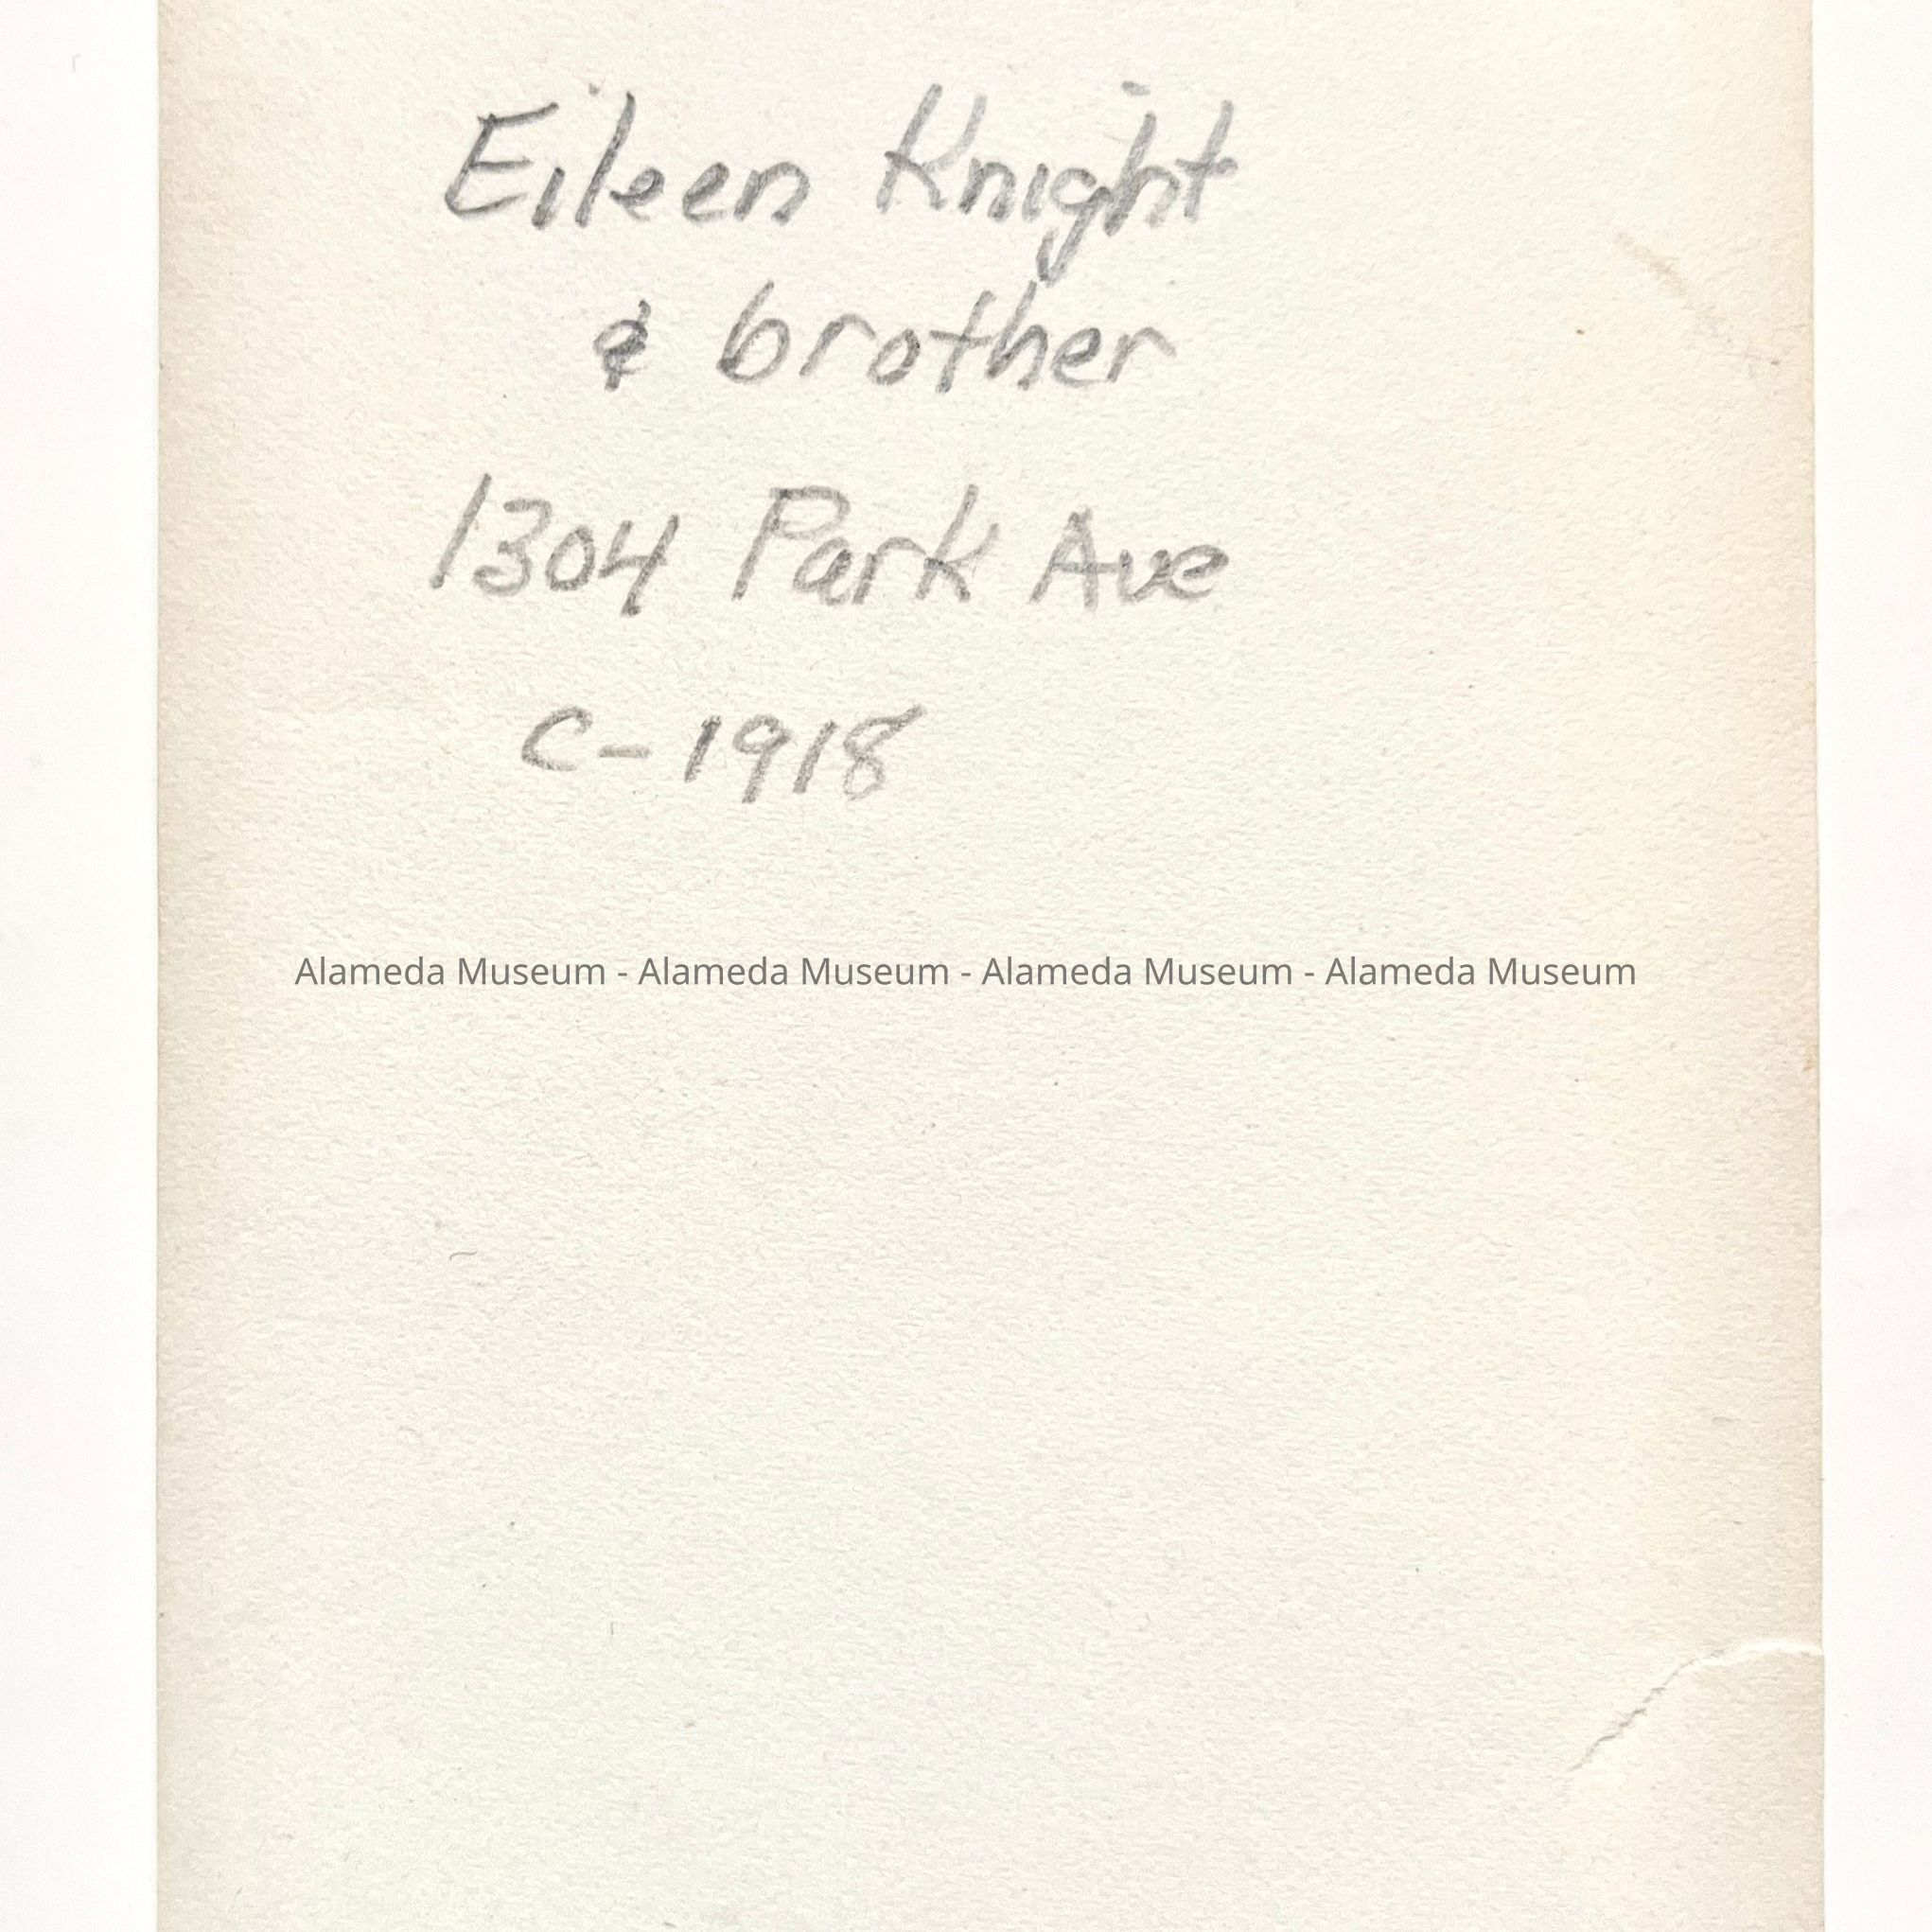 Eileen Knight
& brother
1304 Park Ave
C-1918
Alameda Museum - Alameda Museum - Alameda Museum - Alameda Museum